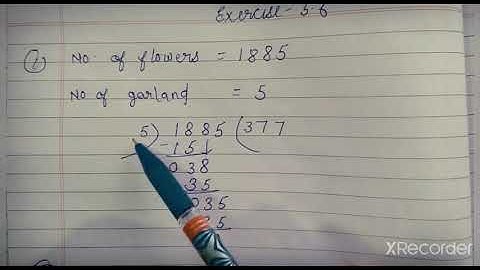 Exercise - 5.6
No. of flowers = 1885
No of garland = 5
5) 1885 (377
-151
038
35
035
5
XRecorder